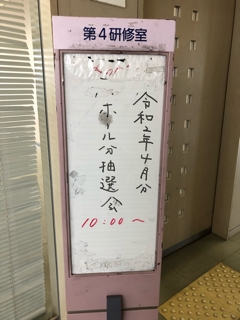 第4研修室
令和2年4月分
ホール分抽選会
10:00〜